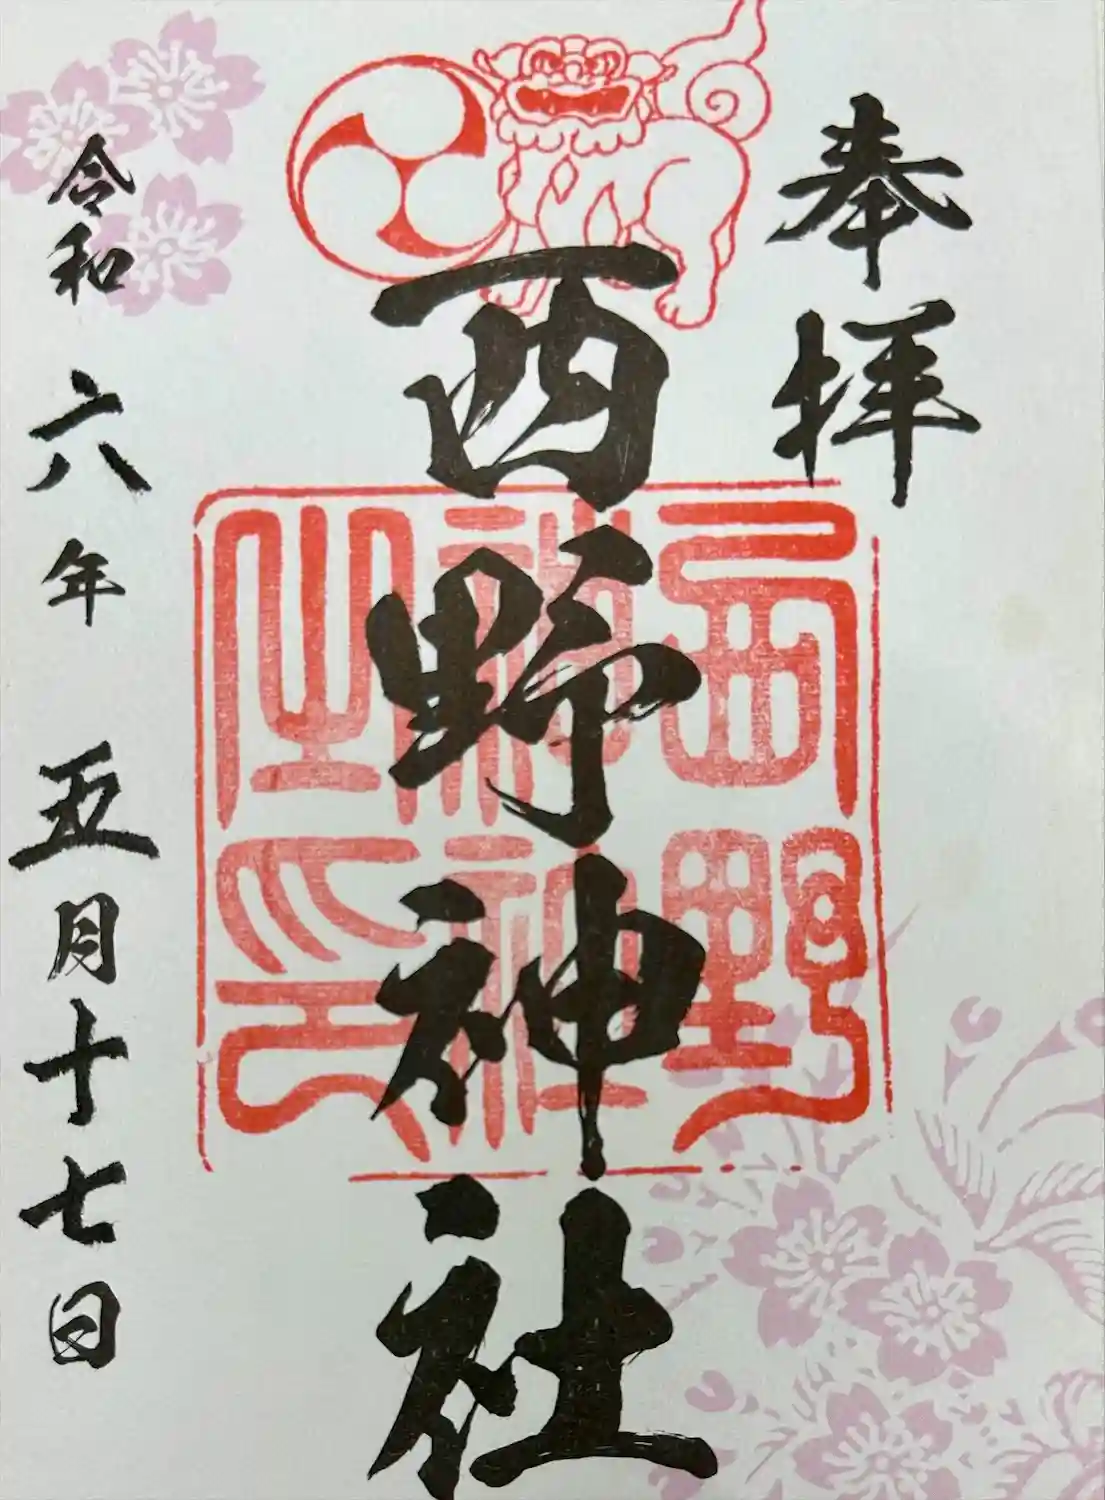 奉拝
西野神社
西野神社之印
令和六年五月十七日